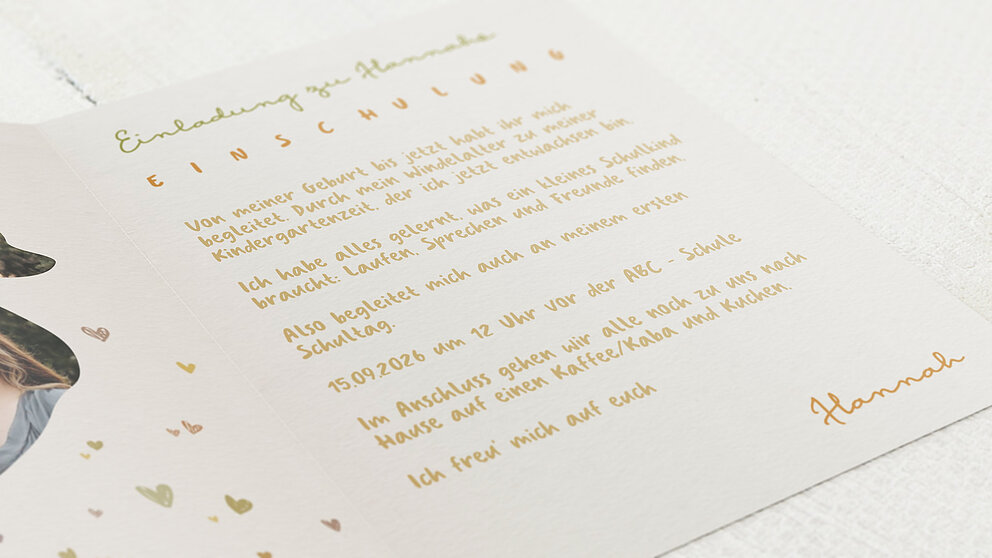 Einladung zu Hannahs
EINSCHULUNG
Von meiner Geburt bis jetzt habt ihr mich
begleitet. Durch mein Windelalter zu meiner
Kindergartenzeit, der ich jetzt entwachsen bin.
Ich habe alles gelernt, was ein kleines Schulkind
braucht: Laufen, Sprechen und Freunde finden.
Also begleitet mich auch an meinem ersten
Schultag.
15.09.2026 um 12 Uhr vor der ABC - Schule
Im Anschluss gehen wir alle noch zu uns nach
Hause auf einen Kaffee/Kaba und Kuchen.
Ich freu' mich auf euch
Hannah